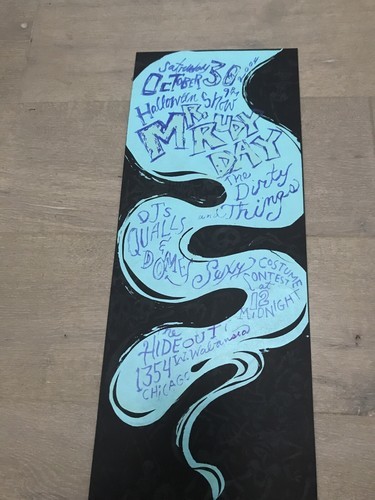 Saturday
OCTOBER 30
Halloween Show
MR. RUDY
DAY
The
Dirty
and Things
DJs
QUALLS
&
DOMEY
Sexy COSTUME
CONTEST
at
12
MIDNIGHT
The
HIDEOUT
1354 W. Wabansia
CHICAGO